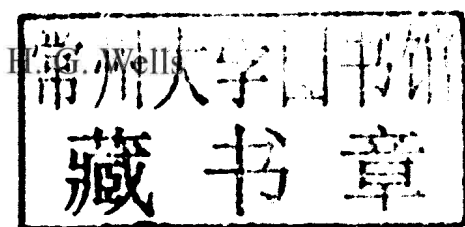 H. G. Wells
常州大学图书馆
藏书章